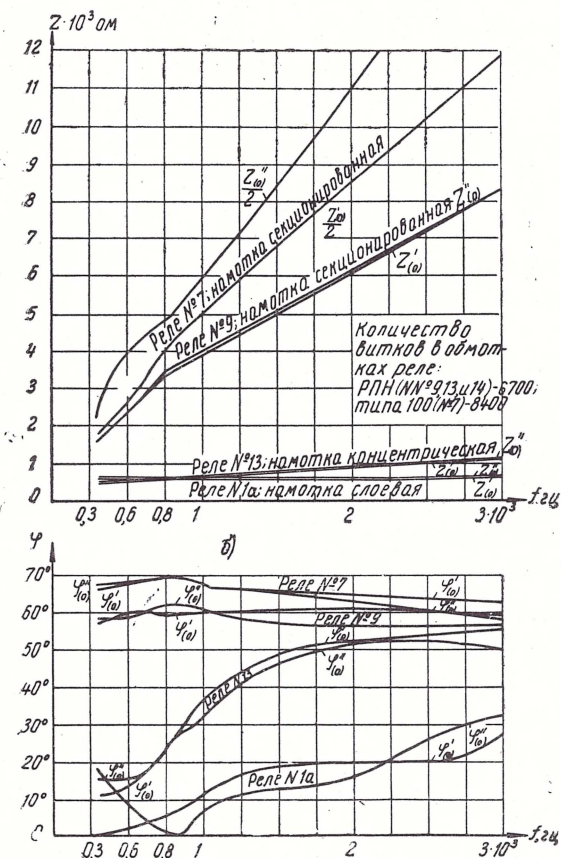 Z·10³ ом
12
11
10
9
8
7
6
5
4
3
2
1
0
Z″(0)
2
Реле №7; намотка секционированная
Z′(0)
2
Реле №9; намотка секционированная Z″(0)
Z′(0)
Количество
витков в обмот-
ках реле:
РПН (NN°9,13,и14)-6700;
типа 100 (№7)-8400
Реле №13; намотка концентрическая, Z″(0)
Z(0)
Z″(0)
Реле N1а; намотка слоевая
Z′(0)
0,3 0,6 0,8 1 2 3·10³ f, гц
φ
б)
70°
60°
50°
40°
30°
20°
10°
0
Реле №7
φ′(0)
φ″(0)
φ″(0)
φ′(0)
φ″(0)
φ′(0)
Реле №9
φ′(0)
φ″(0)
Реле N13
φ″(0)
φ′(0)
Реле N1а
φ′(0)
φ″(0)
0,3 0,6 0,8 1 2 3·10³ f, гц